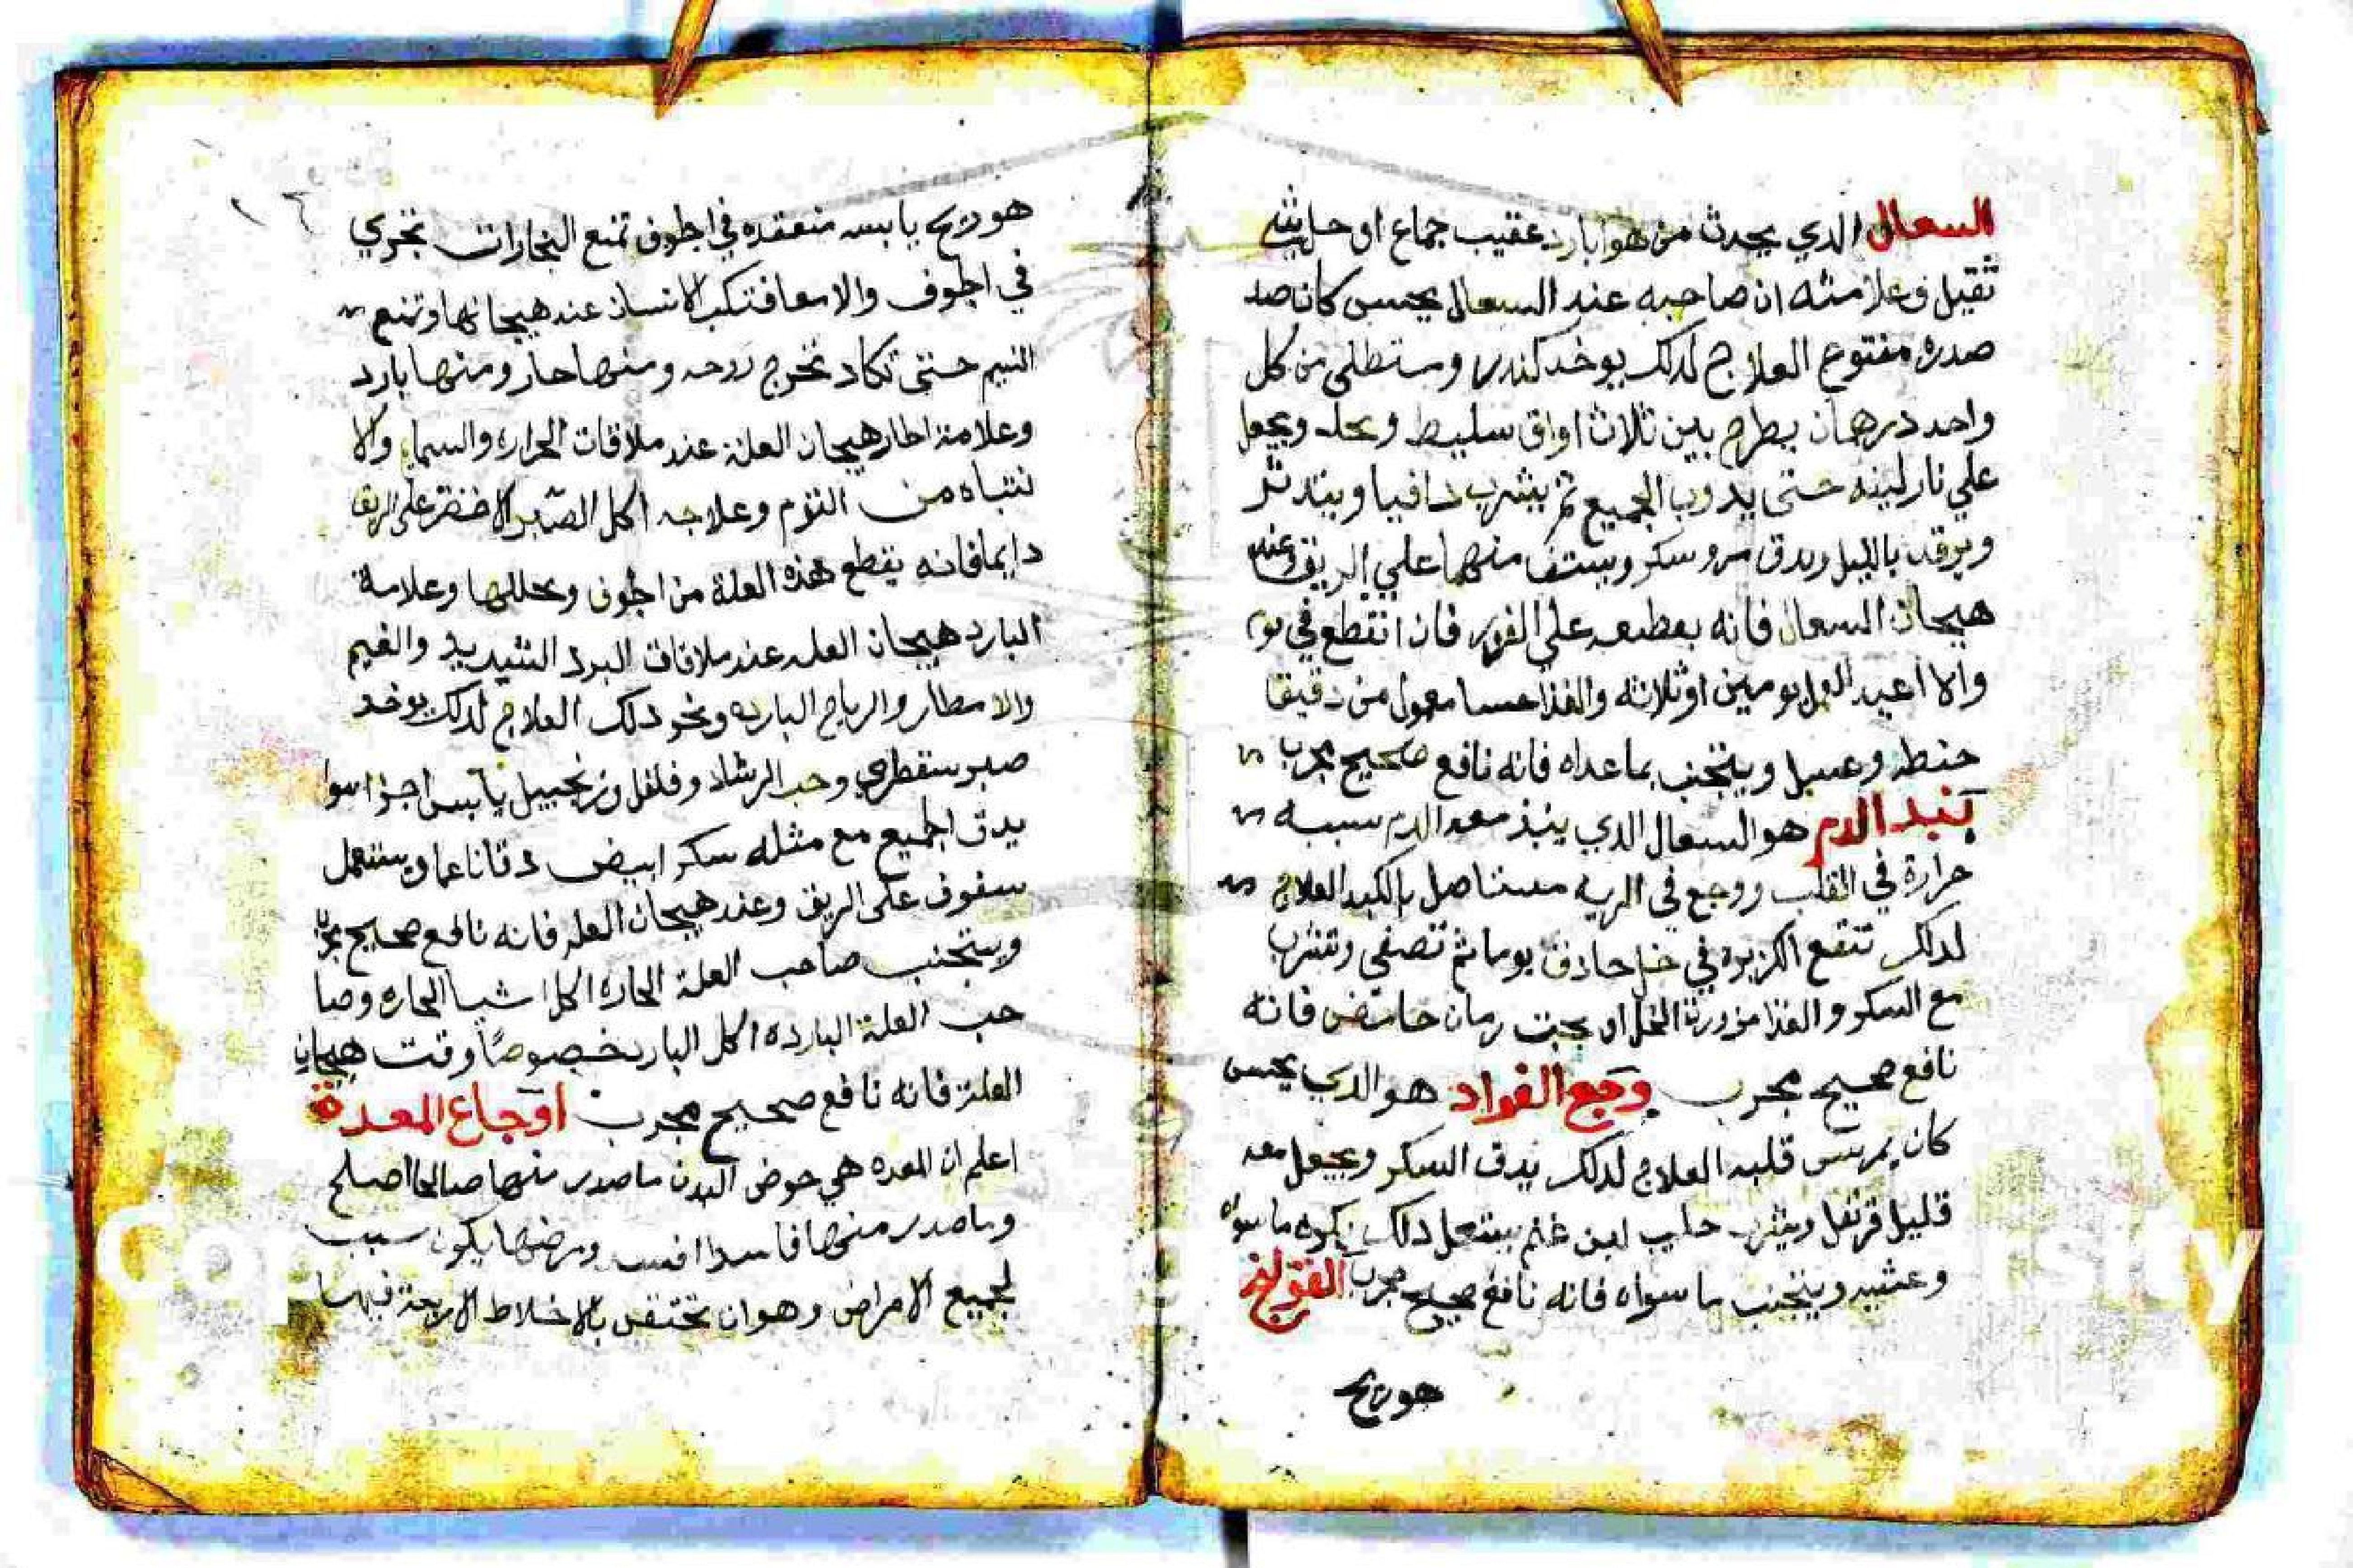 السعال الدي يحدث من هوا بارد عقيب جماع او حل شي
ثقيل وعلامته ان صاحبه عند السعال يحس كان صد
صدره مفتوع العلاج لدلك يوخد كندر ومسـتطكى من كل
واحد درهمان يطرح بين ثلاث اواق سليط ويجعل
علي نار لينه حتى يدوب الجميع ثم يشرب دافيا ويتدثر
ويرقد بالليل ويدق مر وسكر ويستف منهما علي الريق وعند
هيجان السعال فانه يقطعه علي الفور فان انقطع في يوم
والا اعيد العمل يومين او ثلاثه والغدا حسا معمول من دقيقا
حنطه وعسل ويتجنب ما عداه فانه نافع صحيح مجرب
ينبد الدم هو السعال الدي ينبذ معه الدم سببه
حرارة في القلب ووجع في الريه مستاصل بالكبد العلاج
لدلك تنقع الكزبره في خل حاذق يوما ثم تصفى وتشرب
مع السكر والغذا مزورة الخل او بحب رمان حامض فانه
نافع صحيح مجرب وجع الفواد هو الدي يحس
كان يمرس قلبه العلاج لدلك يدق السكر ويجعل معه
قليل قرنفل ويشرب حليب لبن غنم يستعمل دلك بكره ما سواه
وعشيه ويتجنب ما سواه فانه نافع صحيح مجرب القولنج
هو ريح
هو ريح يابسه منعقده في الجوف تمنع البخارات تجري
في الجوف والامعا فتكب الانسان عند هيجانها وتمنع
النسيم حتى تكاد تخرج روحه ومنها حار ومنها بارد
وعلامة الحار هيجان العلة عند ملاقات الحراره والسمايم والا
نتباه من النوم وعلاجه اكل الصبر الاخضر على الريق
دايما فانه يقطع هذه العلة من الجوف ويحللها وعلامة
البارد هيجان العله عند ملاقات البرد الشديد والغيم
والامطار والرياح البارده ونحو دلك العلاج لدلك يوخد
صبر سقطري وحب الرشاد وفلفل وزنجبيل يابس اجزا سوا
يدق الجميع مع مثله سكر ابيض دقا ناعما ويستعمل
سفوف على الريق وعند هيجان العله فانه نافع صحيح مجرب
ويتجنب صاحب العلة الحاره اكل اشيا الحاره وصا
حب العلة البارده اكل البارد خصوصًا وقت هيجان
العلة فانه نافع صحيح مجرب اوجاع المعدة
اعلم ان المعده هي حوض البدن ما صدر منها صالحا اصلح
وما صدر منها فاسدا افسد ومرضها يكون سبب
لجميع الامراض وهو ان تختقن بالاخلاط الاربعة فيها